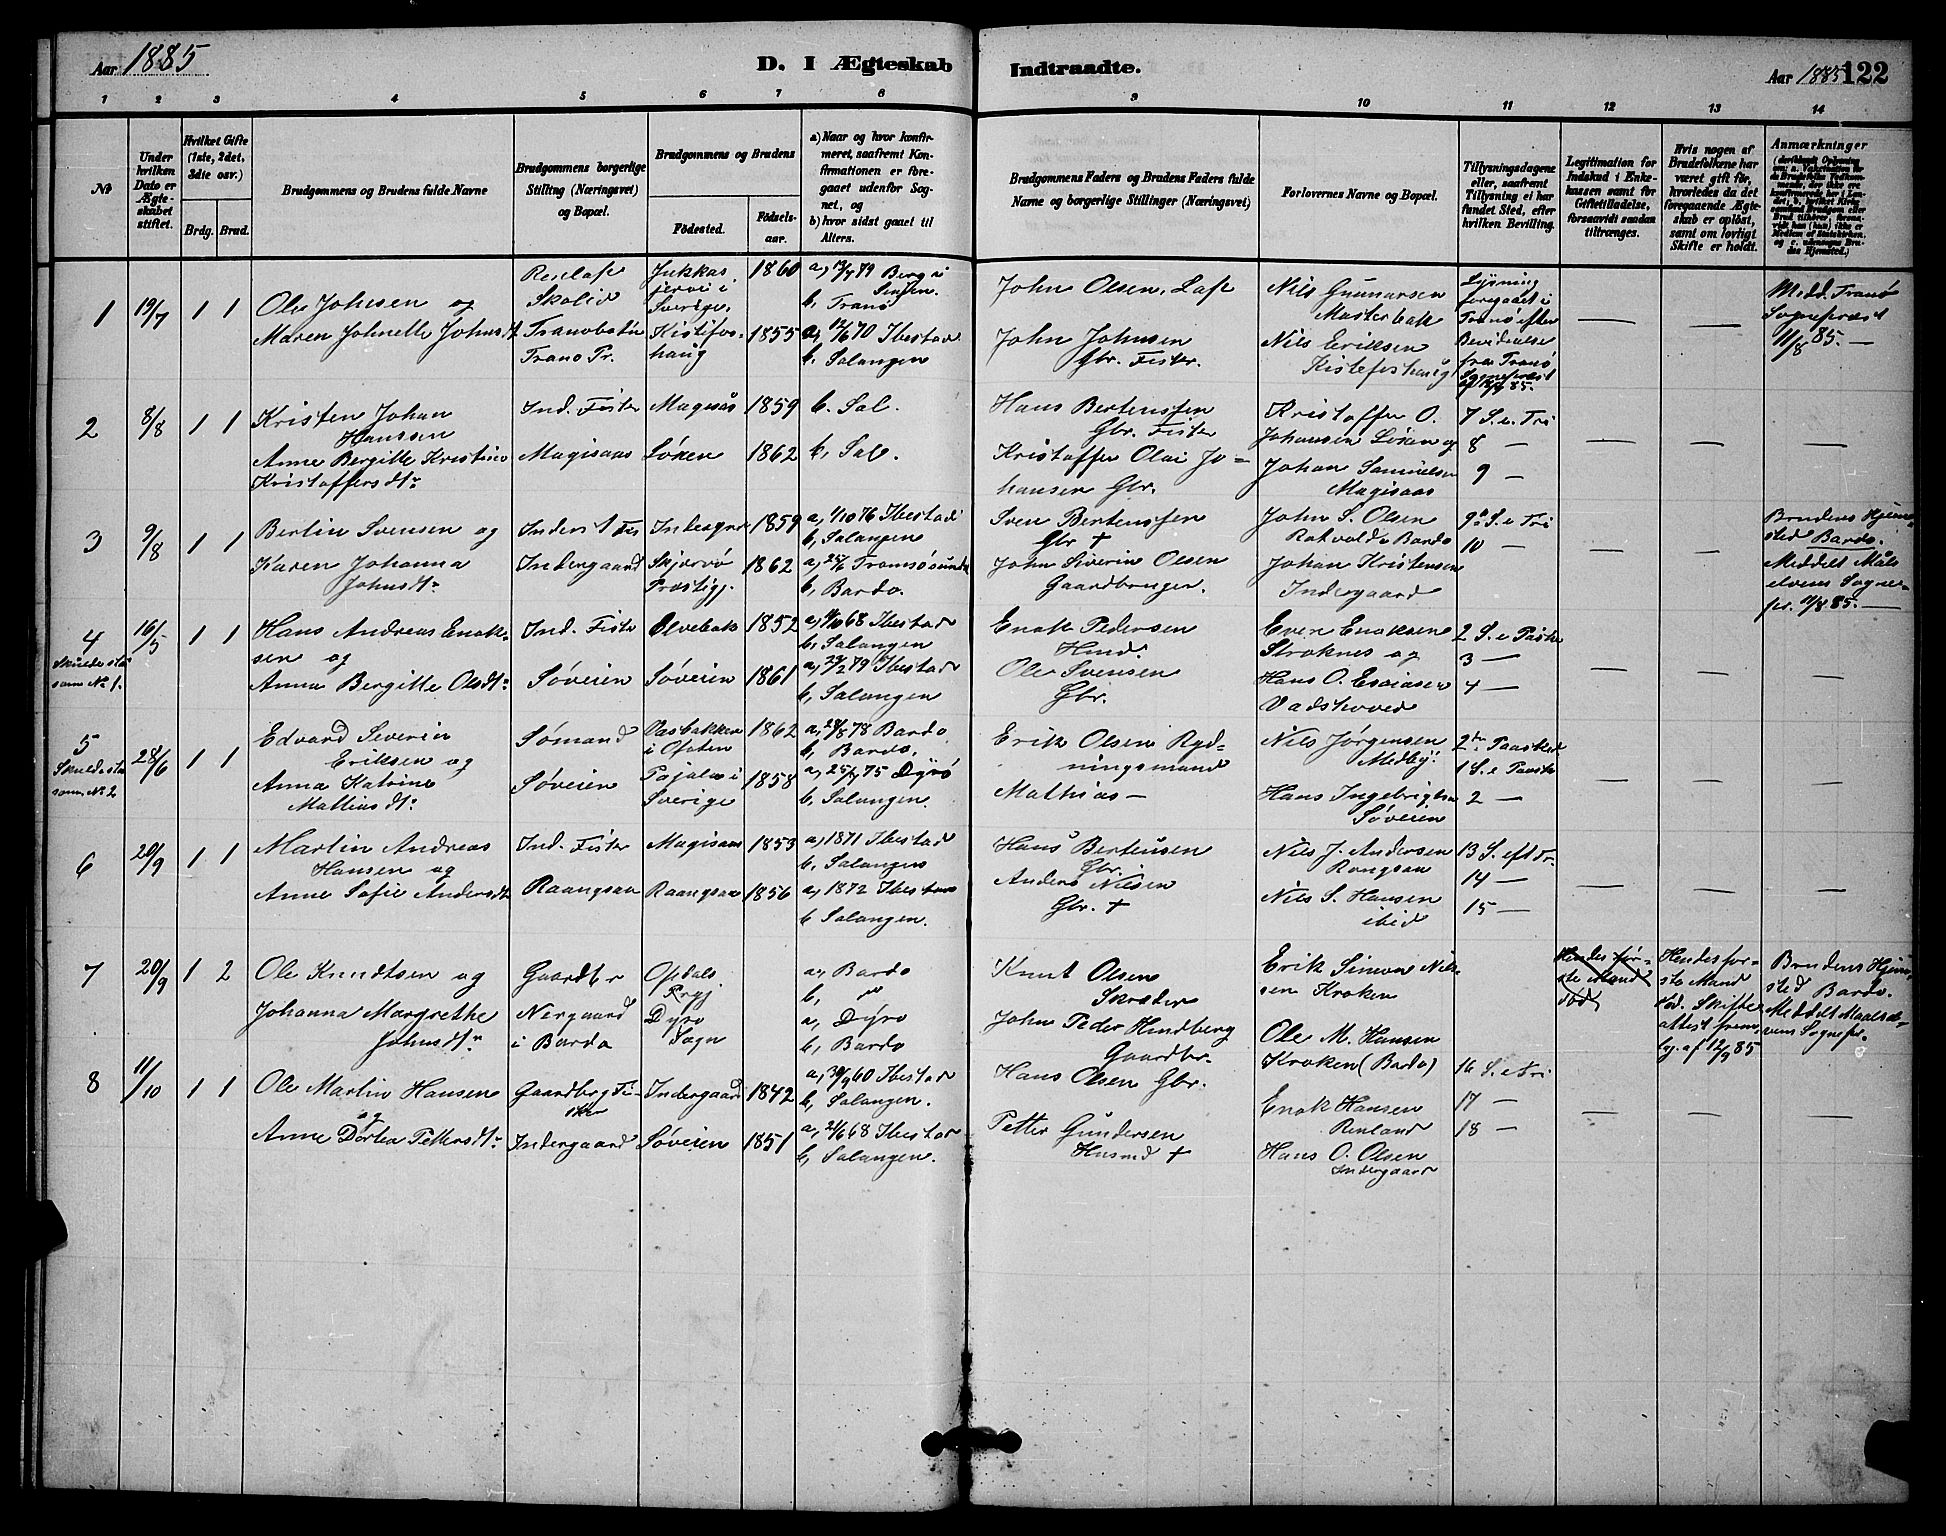 Aar 1885
D. I Ægteskab Indtraadte.
Aar 1885 122
1 2 3 4 5 6 7 8 9 10 11 12 13 14
No
Under hvilken Dato er Ægteskabet stiftet.
Hvilket Gifte (1ste, 2det, 3die osv.)
Brdg. Brud.
Brudgommens og Brudens fulde Navne
Brudgommens borgerlige Stilling (Næringsvei) og Bopæl.
Brudgommens og Brudens
Fødested.
Fødselsaar.
a) Naar og hvor konfirmeret, saafremt Konfirmationen er foregaaet udenfor Sognet, og
b) hvor sidst gaaet til Alters.
Brudgommens Faders og Brudens Faders fulde Navne og borgerlige Stillinger (Næringsvei)
Forlovernes Navne og Bopæl.
Tillysningsdagene eller, saafremt Tillysning ei har fundet Sted, efter hvilken Bevilling.
Legitimation for Indskud i Enkekassen samt for Giftetilladelse, forsaavidt saadan tiltrænges.
Hvis nogen af Brudefolkene har været gift før, hvorledes da det foregaaende Ægteskab er opløst, samt om lovligt Skifte er holdt.
Anmærkninger
1 19/7 1 1
Ole Johnsen og
Maren Johnelle Johnsdt
Renlap
Skolid
Tranobotn
Trano Pr.
Jukkasjervi i Sverige.
Kistefoshaug
1860
1855
a, 13/7 79 Berg i Senjen.
b, Tranø
a, 12/6 70 Ibestad
b, Salangen
John Olsen, Lap
John Johnsen
Gbr. Fisker.
Nils Gunnarsen
Masterbak
Nils Eriksen
Kistefoshaug
Lysning foregaaet i Tranø efter
fra Tranø Sognepræst
85.
— —
Medd. Tranø Sognepræst
11/8 85. —
2 8/8 1 1
Kristen Johan
Hanssen
Anne Bergitte Kristine
Kristoffersdtr
Ind. Fisker
Magisaas
Magisaas
Løxen
1859
1862
b. Sal.
b, Sal.
Hans Bertensen
Gbr. Fisker
Kristoffer Olai Johansen Gbr.
Kristoffer O.
Johansen Løxen og
Johan Samuelsen
Magisaas
7 S. e. Tri
8 —
9 —
— — —
3 9/8 1 1
Bertin Svensen og
Karen Johanna
Johnsdtr
Inderst Fis
Indergaard
Indergrd
Skjervø
Præstgj.
1859
1862
a, 1/10 76 Ibestad
b, Salangen
a, 25/6 Tromsøsundet
b, Bardo.
Sven Bertensen
Gbr +
John Siverin Olsen
Gaardbruger.
John S. Olsen
Rotvold i Bardo
Johan Kristensen
Indergaard
9de S. e Tri
10 —
— —
Brudens Hjemsted Bardo.
Meddelt Målselvens Sognepr. 11/8 85. —
4 16/5 1 1
Skulde staa som No 1.
Hans Andreas Enoksen og
Anna Bergitte Olsdtr
Ind. Fisker
Søveien
Elvebak
Søveien
1852
1861
a, 11/10 68 Ibestad
b, Salangen
a, 29/2 79 Ibestad
b, Salangen
Enok Pedersen
Hmd.
Ole Svensen
Gbr.
Even Enoksen
Stroknes og
Hans O. Esaiasen
Vadshoved
2 S. e Paaske
3 —
4 —
— — —
5 28/6 1 1
Skulde staa som No 2
Edvard Severin
Eriksen og
Anna Katrine
Mattiasdtr
Sømand
Søveien
Vasbakken
i Ofoten
Pajala i
Sverige
1862
1858
a, 28/8 78 Bardo
b, Bardo.
a, 25/4 75 Dyrø
b, Salangen.
Erik Olsen Rydningsmand
Mathias —
Nils Jørgensen
Medby.
Hans Ingebrigtsen
Søveien
2den Paasked
1 S. e Paaske
2 —
— — —
6 20/9 1 1
Martin Andreas
Hansen og
Anne Sofie Andersdt
Ind. Fisker
Raangsaa
Magisaas
Raangsaa
1853
1856
a, 1871 Ibestad
b, Salangen
a, 1872 Ibestad
b Salangen.
Hans Bertensen
Gbr.
Anders Nilsen
Gbr. +
Nils J. Andersen
Rangsaa
Nils S. Hansen
ibid
13 S. eft Tr.
14 —
15 —
— — —
7 20/9 1 2
Ole Knudtsen og
Johanna Margrethe
Johnsdtr
Gaardbr
Nergaard
i Bardo
Opdals
Prgj.
Dyrø
Sogn
a, Bardo
b, "
a, Dyrø
b, Bardo
Knut Olsen
Skræder
John Peder Hindberg
Gaardbr.
Erik Simon Nilsen Kroken
Ole M. Hansen
Kroken (Bardo)
Hendes første Mand død
Hendes første Mand død. Skifteattest fremlg. af 12/9 85
Brudens Hjemsted Bardo.
Meddelt Maalselvens Sognepr.
8 11/10 1 1
Ole Martin Hansen
og
Anne Dortea Pettersdtr
Gaardbrg Fisker
Indergaard
Indergaard
Søveien
1842
1851
a, 30/9 60 Ibestad
b, Salangen.
a, 21/6 68 Ibestad
b, Salangen.
Hans Olsen Gbr.
Petter Gundersen
Husmd +
Enok Hansen
Renland
Hans O. Olsen
Indergaard
16 S. e Tri
17 —
18 —
— — —